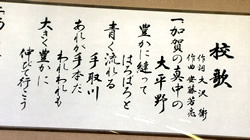 校歌
作詞 大沢衛
作曲 安藤芳亮
一、加賀の真中の
大平野
豊かに縫って
はろばろと
青く流れる
手取川
あれが手本だ
われわれも
大きく豊かに
伸びて行こう